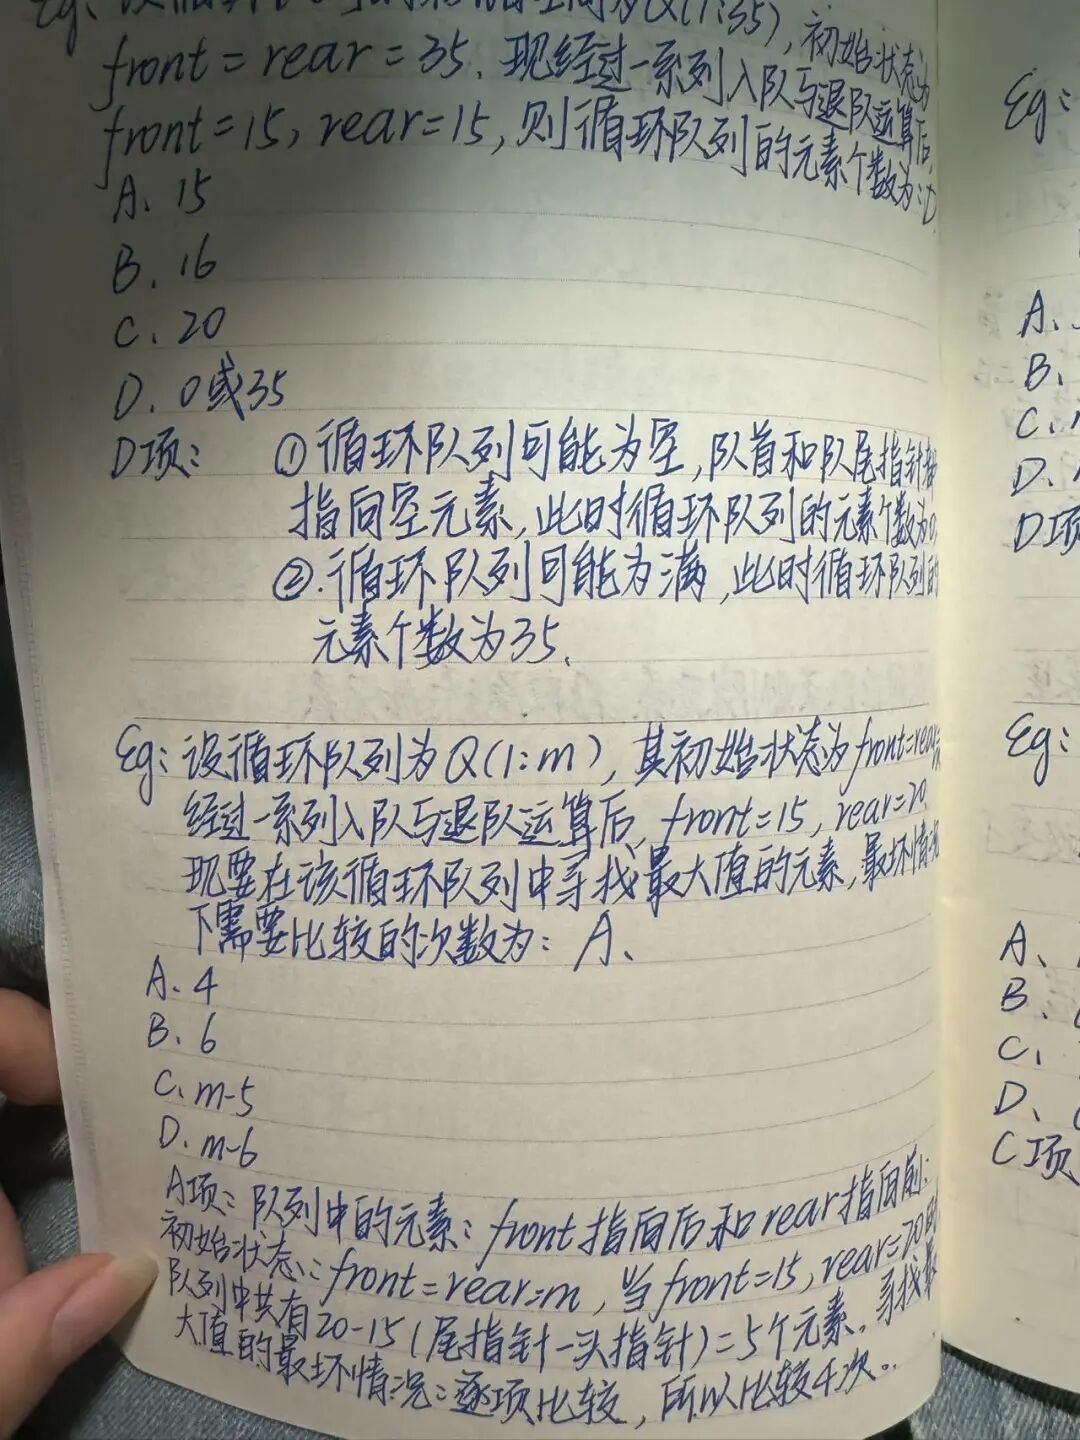 Q(1:35), 初始状态为
front = rear = 35. 现经过一系列入队与退队运算后,
front=15, rear=15, 则循环队列的元素个数为: D
A. 15
B. 16
C. 20
D. 0或35
D项: ①循环队列可能为空, 队首和队尾指针都
指向空元素, 此时循环队列的元素个数为0.
②. 循环队列可能为满, 此时循环队列的
元素个数为35.
Eg: 设循环队列为Q(1:m), 其初始状态为front=rear=
经过一系列入队与退队运算后, front=15, rear=20.
现要在该循环队列中寻找最大值的元素, 最坏情况
下需要比较的次数为: A.
A. 4
B. 6
C. m-5
D. m-6
A项: 队列中的元素: front指向后和rear指向前:
初始状态: front=rear=m, 当front=15, rear=20时
队列中共有20-15(尾指针-头指针)=5个元素. 寻找最
大值的最坏情况: 逐项比较, 所以比较4次.
Eg:
A.
B.
C.
D.
D项
Eg:
A.
B.
C.
D.
C项